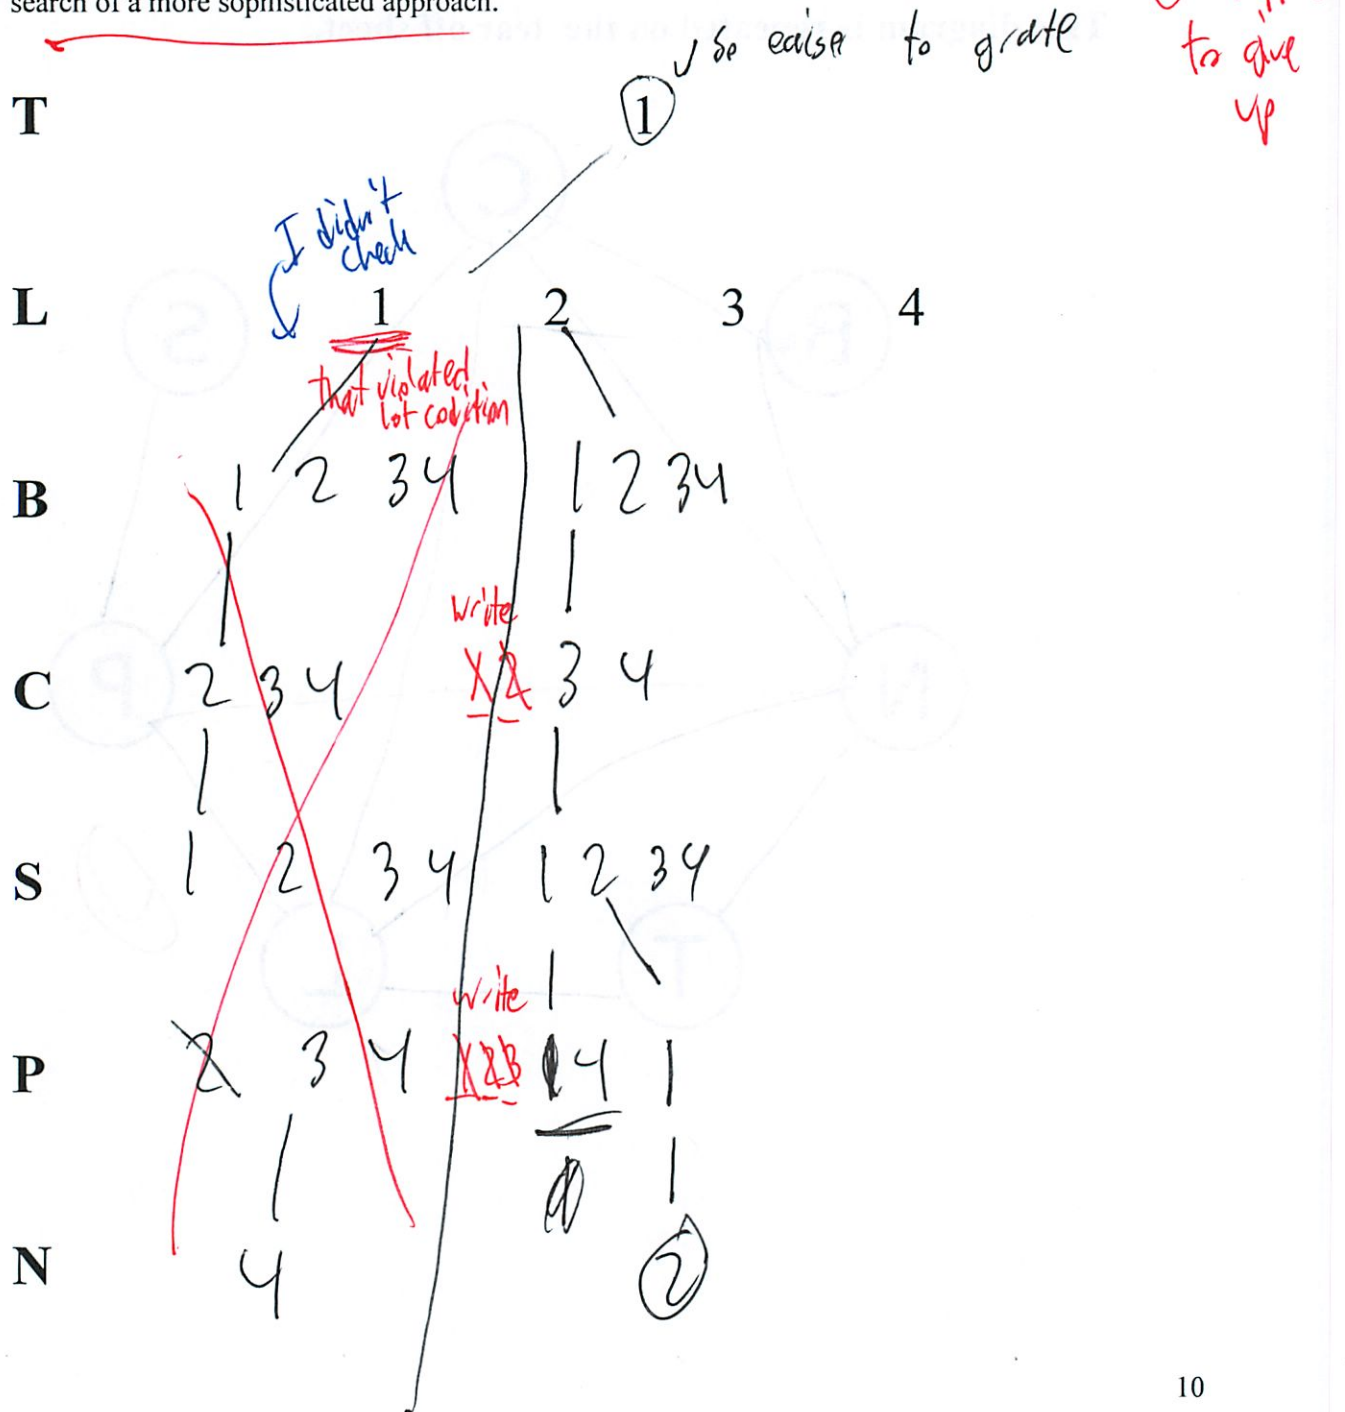 search of a more sophisticated approach.
so easier to grate
to give
up
T
1
I didn't
check
L 1 2 3 4
that violated
lot codition
B 1 2 3 4 1 2 3 4
write
C 2 3 4 1 2 3 4
S 1 2 3 4 1 2 3 4
write
P 2 3 4 1 2 3 1 4 1
N 4 2
10